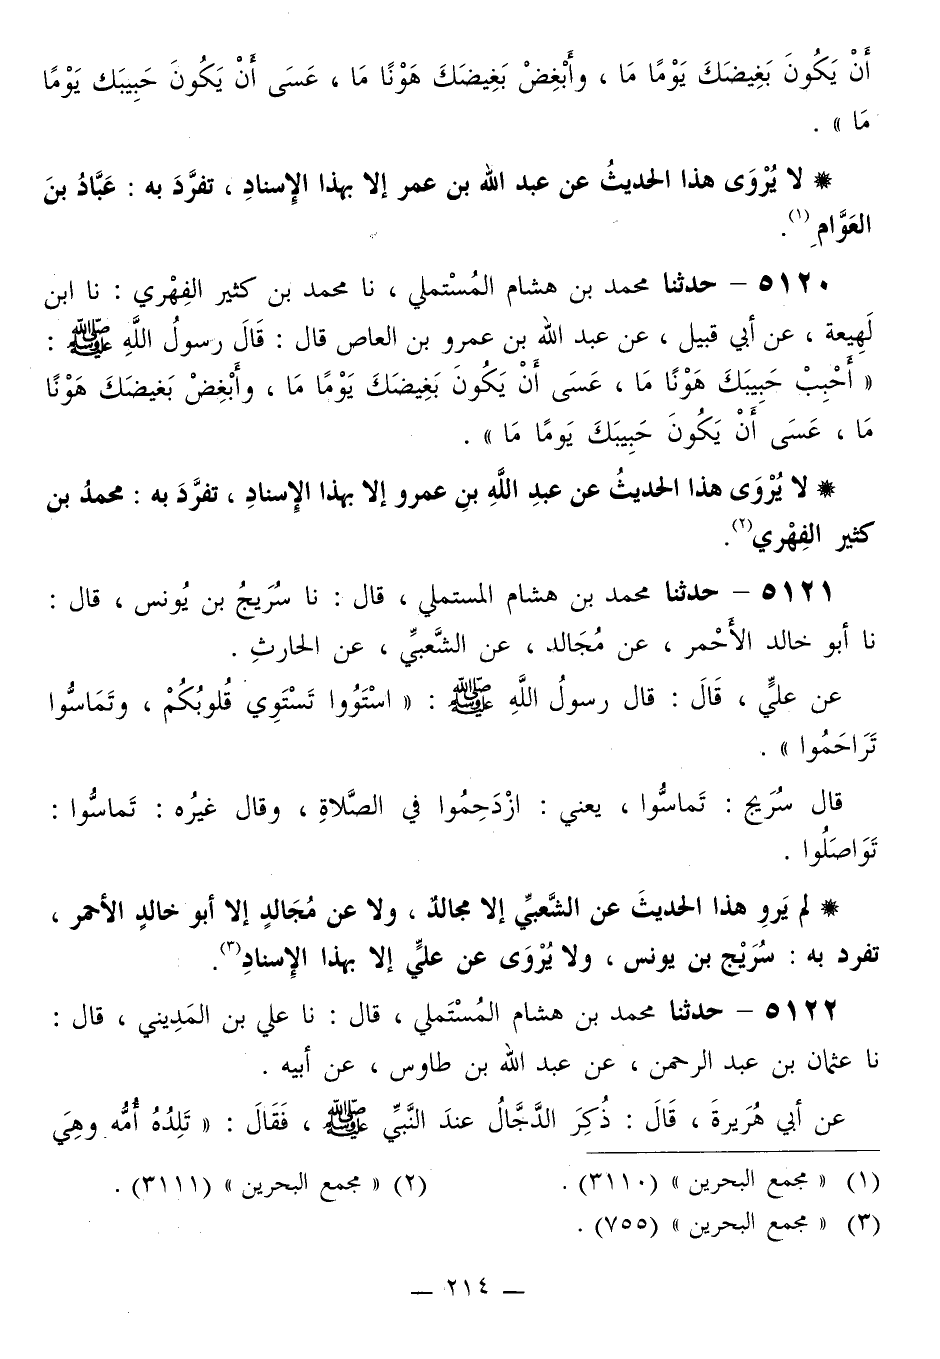 أَنْ يَكُونَ بَغِيضَكَ يَوْمًا مَا ، وأَبْغِضْ بَغِيضَكَ هَوْنًا مَا ، عَسَى أَنْ يَكُونَ حَبِيبَك يَوْمًا
مَا » .
* لا يُرْوَى هذا الحديثُ عن عبد الله بن عمر إلا بهذا الإِسنادِ ، تفرَّدَ به : عَبَّادُ بنَ
العَوَّامِ (١).
٥١٢٠ – حدثنا محمد بن هشام المُسْتملي ، نا محمد بن كثير الفِهْري : نا ابن
لَهِيعة ، عن أبي قبيل ، عن عبد الله بن عمرو بن العاص قال : قَالَ رسولُ اللَّهِ ﷺ :
« أَحْبِبْ حَبِيبَكَ هَوْنًا مَا ، عَسَى أَنْ يَكُونَ بَغِيضَكَ يَوْمًا مَا ، وأَبْغِضْ بَغيضَكَ هَوْنًا
مَا ، عَسَى أَنْ يَكُونَ حَبِيبَكَ يَومًا مَا » .
* لا يُرْوَى هذا الحديثُ عن عبدِ اللَّهِ بنِ عمرو إلا بهذا الإِسنادِ ، تفرَّدَ به : محمدُ بن
كثير الفِهْري(٢).
٥١٢١ – حدثنا محمد بن هشام المستملي ، قال : نا سُرَيجُ بن يُونس ، قال :
نا أبو خالد الأَحْمر ، عن مُجَالد ، عن الشَّعبيِّ ، عن الحارثِ .
عن عليٍّ ، قَالَ : قال رسولُ اللَّهِ ﷺ : « اسْتَوُوا تَسْتَوِي قُلوبُكُمْ ، وتَمَاسُّوا
تَرَاحَمُوا » .
قال سُرَيج : تَماسُّوا ، يعني : ازْدَحِمُوا في الصَّلاةِ ، وقال غيرُه : تَماسُّوا :
تَوَاصَلُوا .
* لم يَروِ هذا الحديثَ عن الشَّعبيِّ إلا مجالدٌ ، ولا عن مُجَالدٍ إلا أبو خالدٍ الأحمر ،
تفرد به : سُرَيْج بن يونس ، ولا يُرْوَى عن عليٍّ إلا بهذا الإِسنادِ(٣).
٥١٢٢ – حدثنا محمد بن هشام المُسْتَملي ، قال : نا علي بن المَدِيني ، قال :
نا عثمان بن عبد الرحمن ، عن عبد الله بن طاوس ، عن أبيه .
عن أبي هُرَيرةَ ، قَالَ : ذُكِرَ الدَّجَّالُ عندَ النَّبيِّ ﷺ ، فَقَالَ : « تَلِدُهُ أُمُّه وهِيَ
(١) « مجمع البحرين » (٣١١٠) . (٢) « مجمع البحرين » (٣١١١) .
(٣) « مجمع البحرين » (٧٥٥) .
— ٢١٤ —